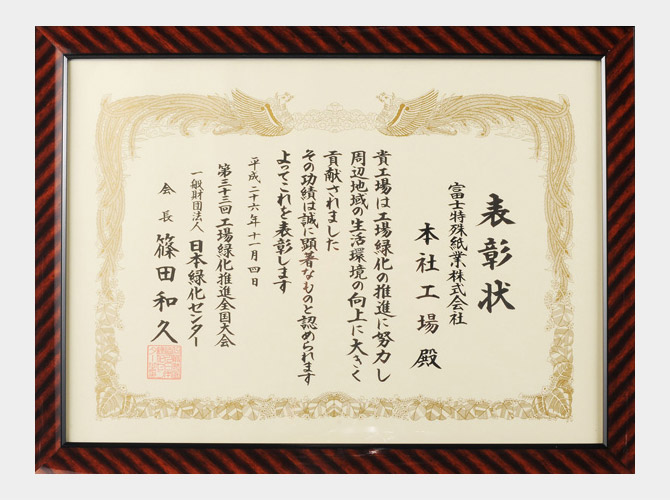 表彰状
富士特殊紙業株式会社
本社工場殿
貴工場は工場緑化の推進に努力し
周辺地域の生活環境の向上に大きく
貢献されました
その功績は誠に顕著なものと認められます
よってこれを表彰します
平成二十六年十一月四日
第三十三回工場緑化推進全国大会
一般財団法人 日本緑化センター
会長 篠田和久